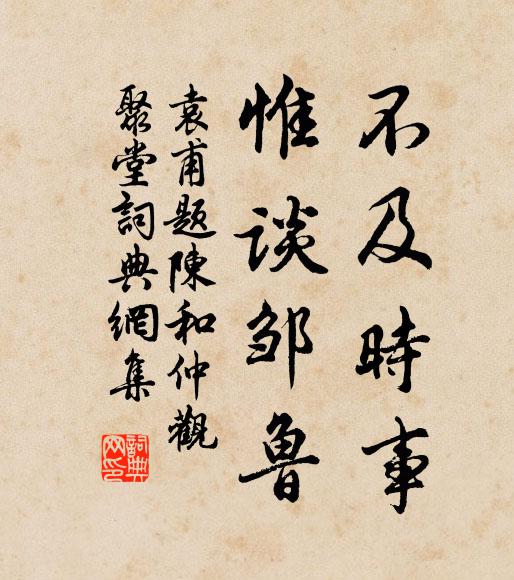 不及時事
惟談邹魯
袁甫題陳和仲觀
聚堂詞典網集
詞典网印